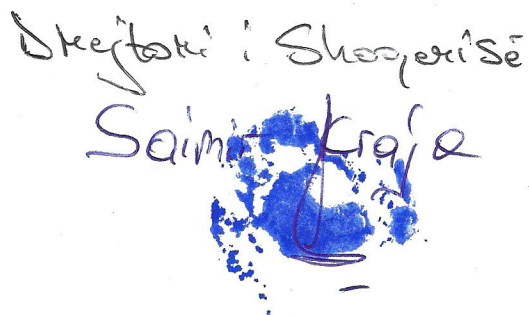 Drejtori i Shoqerisë
Saimir Kraja